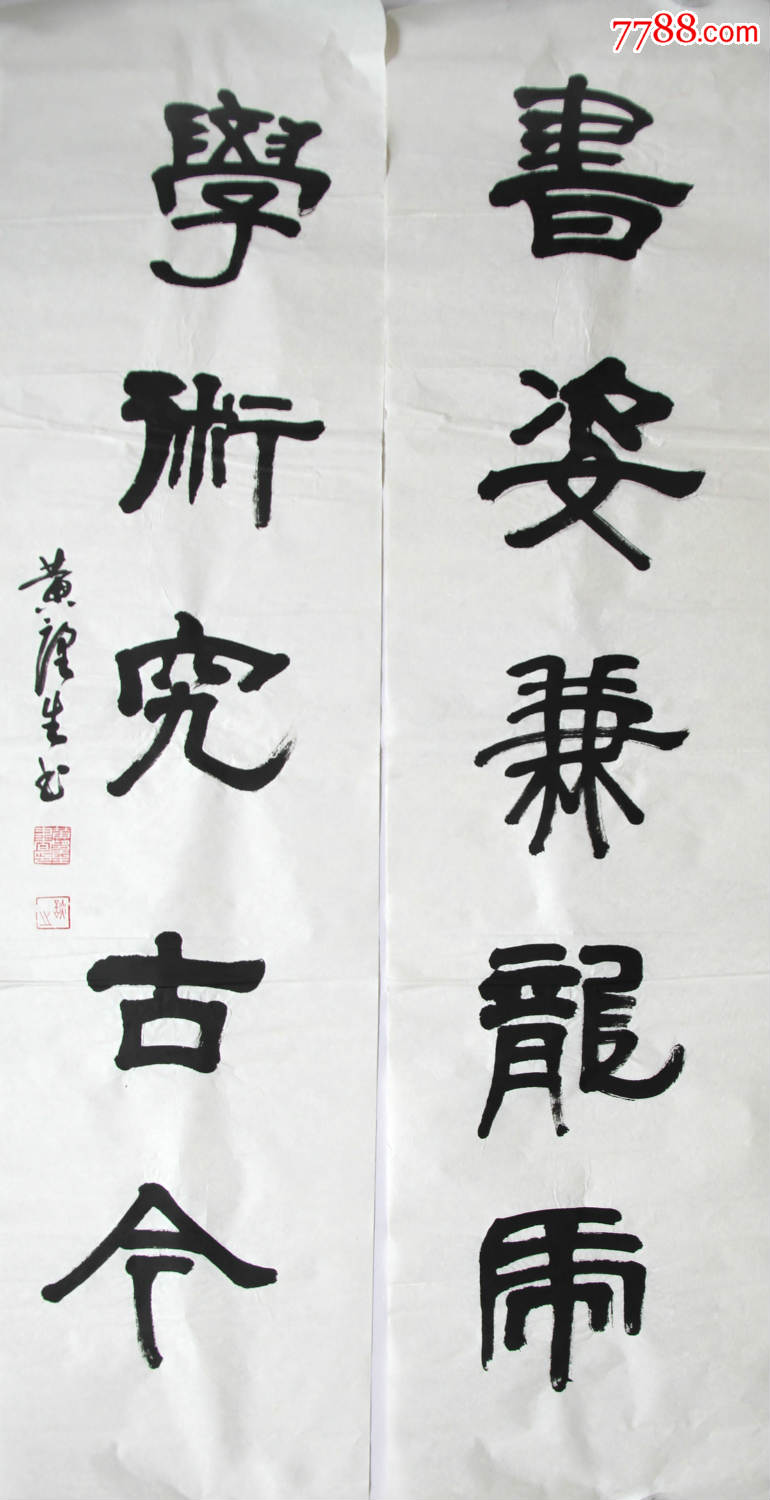 7788.com
書姿兼龍虎
學術究古今
黄謹生书